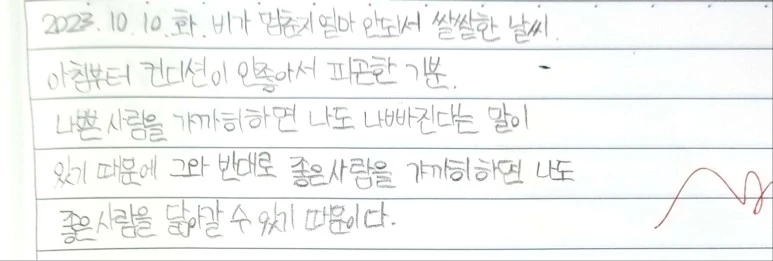 2023. 10. 10. 화. 비가 멈춘지 얼마 안되서 쌀쌀한 날씨.
아침부터 컨디션이 안좋아서 피곤한 기분.
나쁜 사람을 가까히하면 나도 나빠진다는 말이
있기 때문에 그와 반대로 좋은사람을 가까히하면 나도
좋은사람을 닮아갈 수 있기 때문이다.